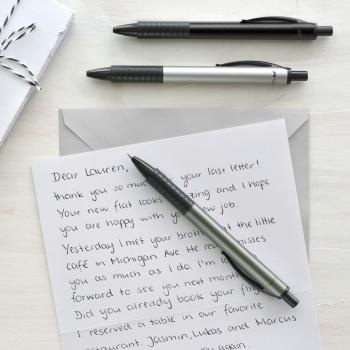 Dear Lauren,
thank you so mu your last letter!
Your new flat looks zing and I hope
you are happy with w job.
Yesterday I met your broth t the little
café in Michigan Ave. He rea misses
you as much as I do. I'm l
forward to see you next mont
Did you already book your flig
I reserved a table in our favorite
estaurant. Jasmin, Lukas and Marcus
you again.